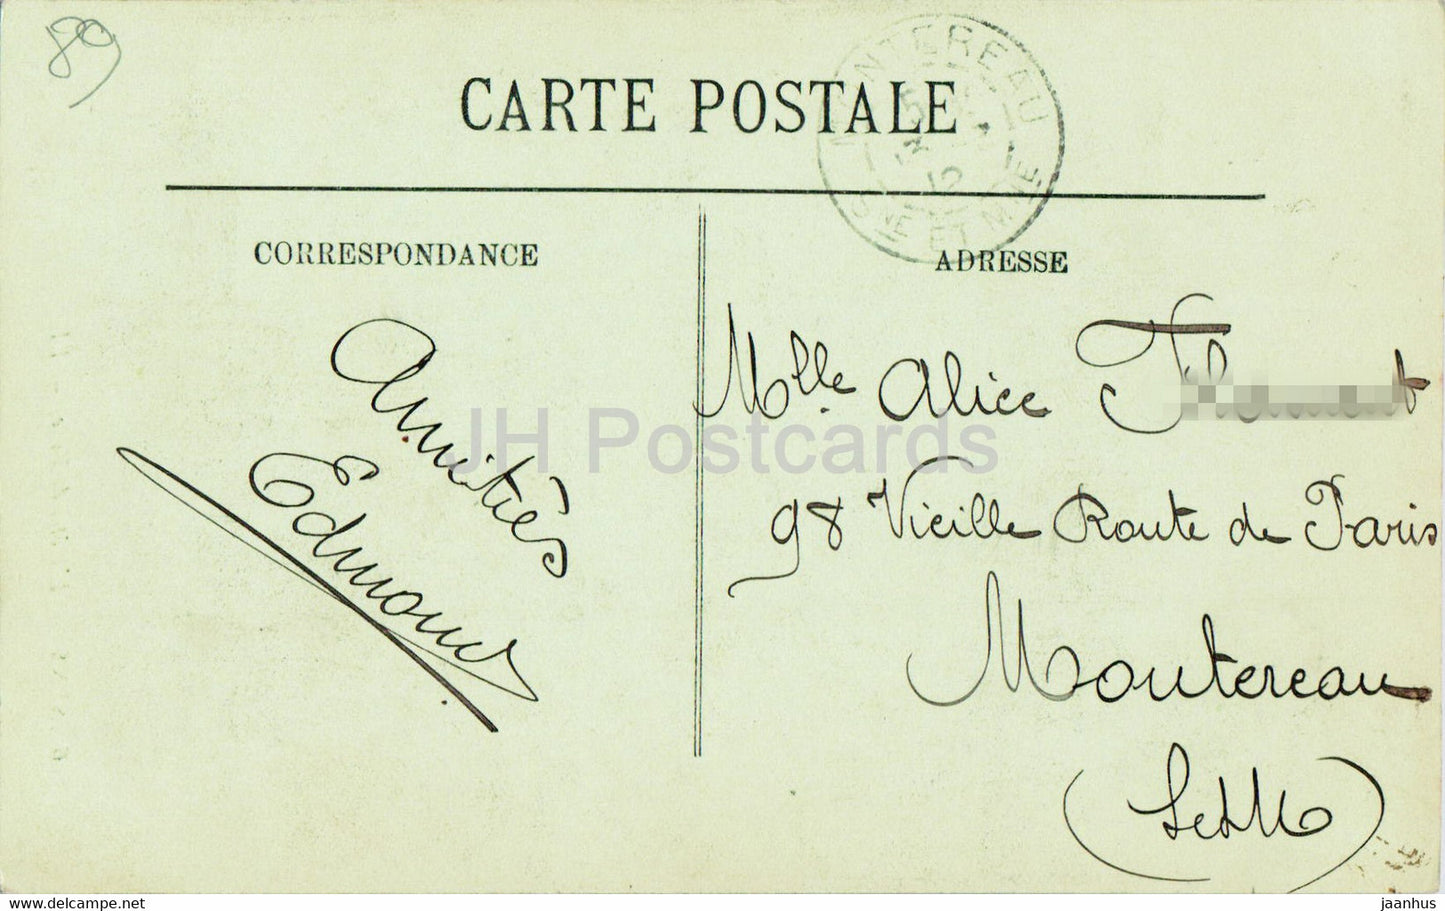 89
CARTE POSTALE
MONTEREAU
5
3
12
SNE ET MNE
CORRESPONDANCE
ADRESSE
Amitiés
Edmond
Mlle Alice
98 Vieille Route de Paris
Montereau
(S et M)
JH Postcards
www.delcampe.net
jaanhus